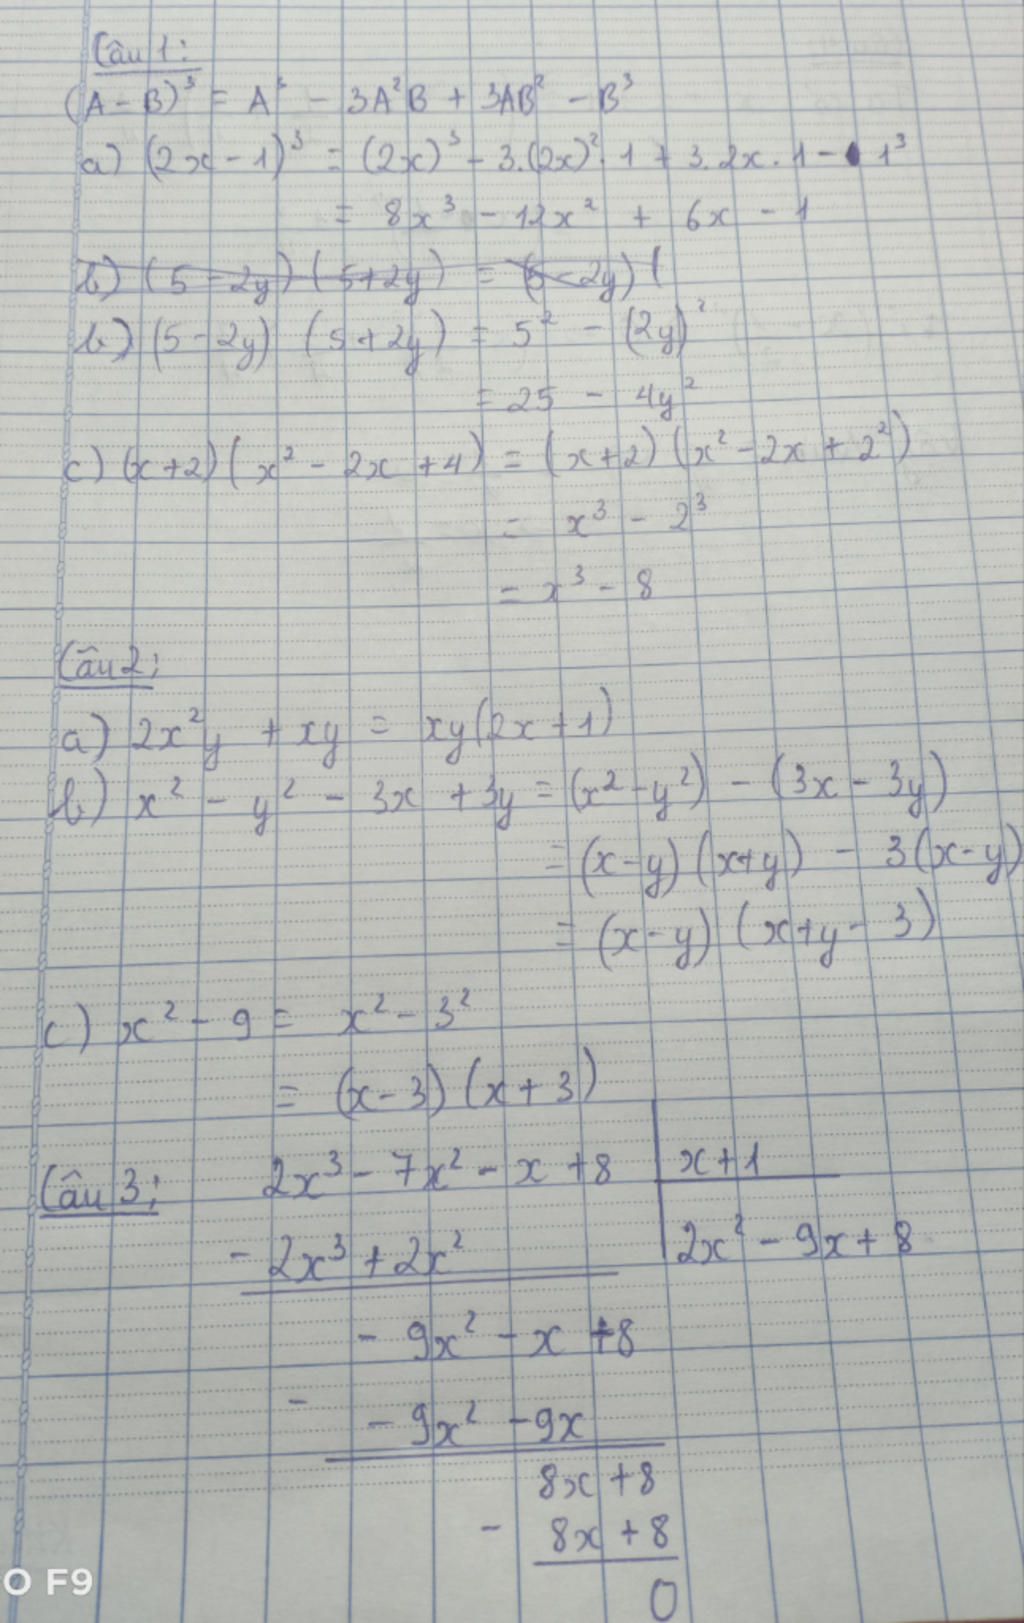 Câu 1:
(A - B)³ = A³ - 3A²B + 3AB² - B³
a) (2x - 1)³ = (2x)³ - 3.(2x)². 1 + 3.2x.1 - 1³
= 8x³ - 12x² + 6x - 1
b) (5 - 2y) (5 + 2y) = (5 - 2y) (
b) (5 - 2y) (5 + 2y) = 5² - (2y)²
= 25 - 4y²
c) (x + 2) (x² - 2x + 4) = (x + 2) (x² - 2x + 2²)
= x³ - 2³
= x³ - 8
Câu 2:
a) 2x²y + xy = xy(2x + 1)
b) x² - y² - 3x + 3y = (x² - y²) - (3x - 3y)
= (x - y) (x + y) - 3(x - y)
= (x - y) (x + y - 3)
c) x² - 9 = x² - 3²
= (x - 3) (x + 3)
Câu 3: 2x³ - 7x² - x + 8 | x + 1
- 2x³ + 2x² | 2x² - 9x + 8
- 9x² - x + 8
- - 9x² - 9x
8x + 8
- 8x + 8
0
O F9